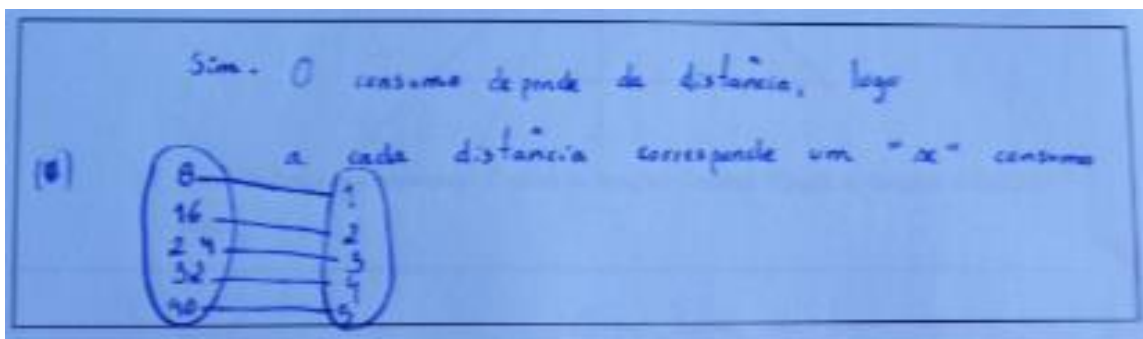 Sim. O consumo depende da distância, logo
a cada distância corresponde um "x" consumo
8 1
16 2
24 3
32
40 5